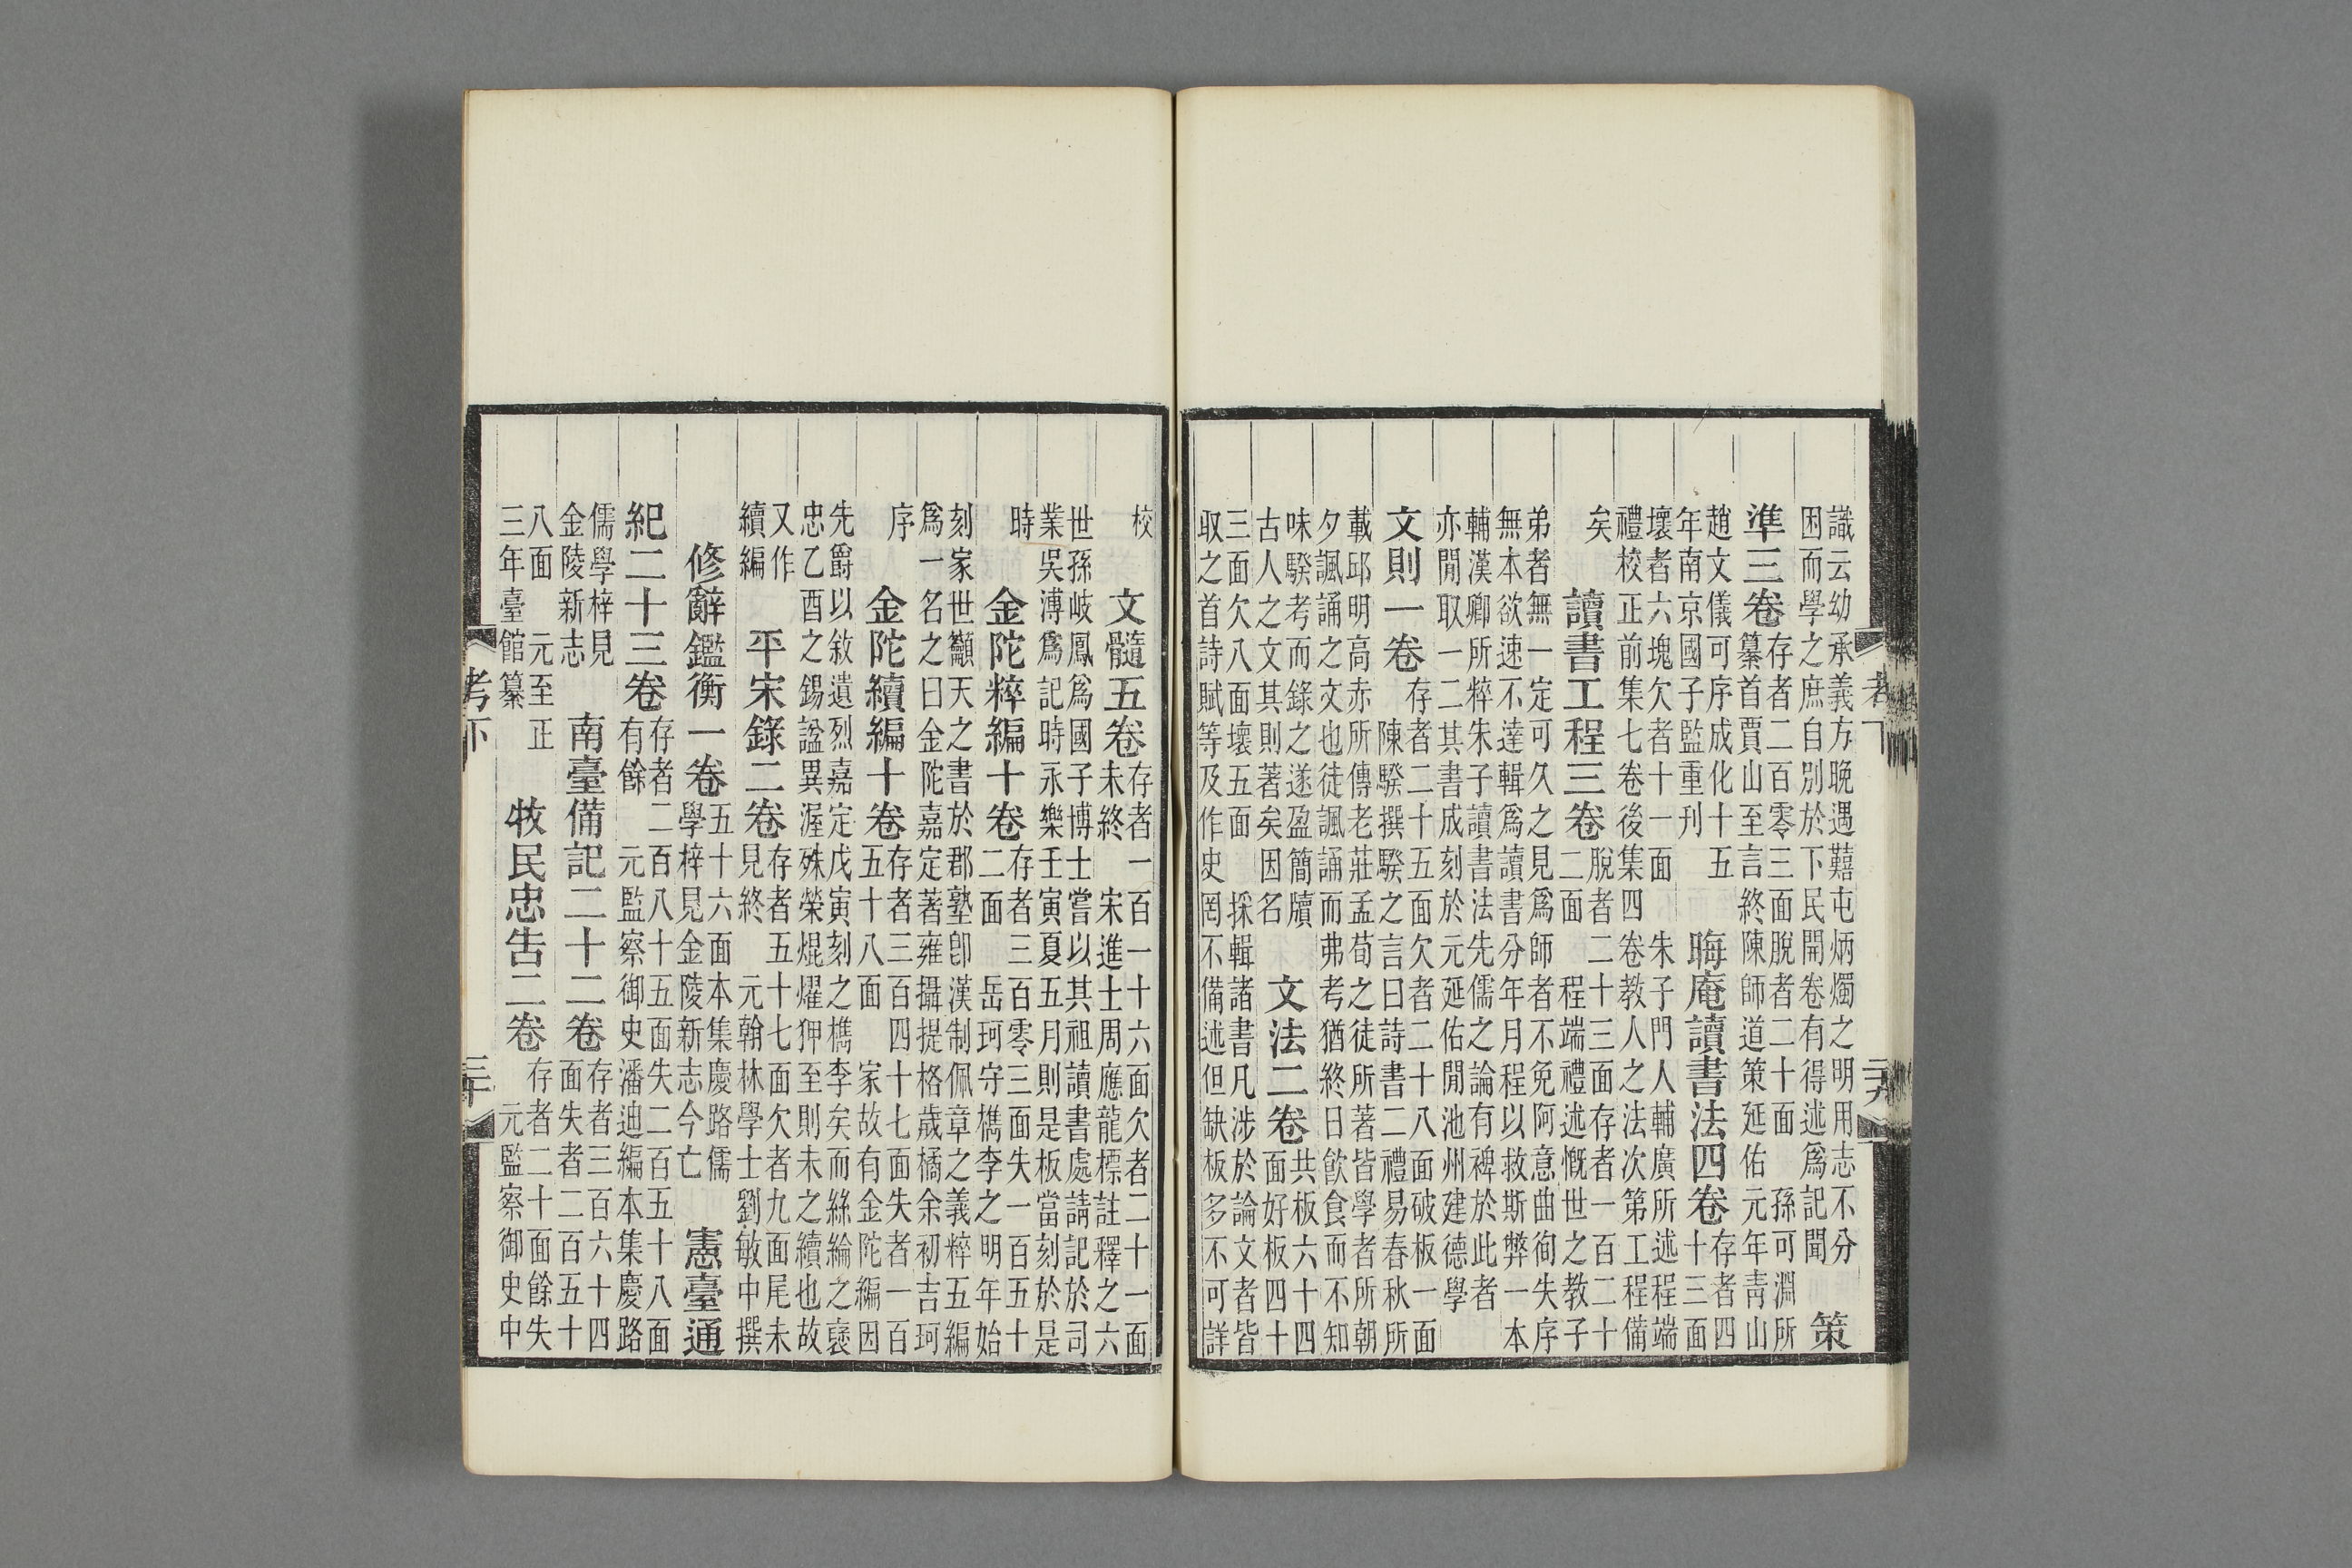 識云幼承義方晚遇囏屯炳燭之明用志不分
困而學之庶自別於下民開卷有得述爲記聞　策
準三卷
存者二百零三面脫者二十面　孫可淵所
纂首賈山至言終陳師道策延佑元年青山
趙文儀可序成化十五
年南京國子監重刊
晦庵讀書法四卷
存者四
十三面
壞者六塊欠者十一面　朱子門人輔廣所述程端
禮校正前集七卷後集四卷教人之法次第工程備
矣
讀書工程三卷
脫者二十三面存者一百二十
二面　程端禮述慨世之教子
弟者無一定可久之見爲師者不免阿意曲徇失序
無本欲速不達輯爲讀書分年月程以救斯弊一本
輔漢卿所粹朱子讀書法先儒之論有裨於此者
亦閒取一二其書成刻於元延佑閒池州建德學
文則一卷
存者二十五面欠者二十八面破板一面
陳騤撰騤之言曰詩書二禮易春秋所
載邱明高赤所傳老莊孟荀之徒所著皆學者所朝
夕諷誦之文也徒諷誦而弗考猶終日飮食而不知
味騤考而錄之遂盈簡牘
古人之文其則著矣因名
文法二卷
共板六十四
面好板四十
三面欠八面壞五面　採輯諸書凡涉於論文者皆
取之首詩賦等及作史罔不備述但缺板多不可詳
考下
二十九
校
文髓五卷
存者一百一十六面欠者二十一面
未終　宋進士周應龍標註釋之六
世孫岐鳳爲國子博士嘗以其祖讀書處請記於司
業吳溥爲記時永樂壬寅夏五月則是板當刻於是
時
金陀粹編十卷
存者三百零三面失一百五十
二面　岳珂守檇李之明年始
刻家世籲天之書於郡塾卽漢制佩章之義粹五編
爲一名之曰金陀嘉定著雍攝提格歲橘余初吉珂
序
金陀續編十卷
存者三百四十七面失者一百
五十八面　家故有金陀編因
先爵以敘遺烈嘉定戊寅刻之檇李矣而絲綸之褒
忠乙酉之錫諡異渥殊榮焜燿狎至則未之續也故
又作
續編
平宋錄二卷
存者五十七面欠者九面尾未
見終　元翰林學士劉敏中撰
修辭鑑衡一卷
五十六面本集慶路儒
學梓見金陵新志今亡
憲臺通
紀二十三卷
存者二百八十五面失二百五十八面
有餘　元監察御史潘迪編本集慶路
儒學梓見
金陵新志
南臺備記二十二卷
存者三百六十四
面失者二百五十
八面　元至正
三年臺館纂
牧民忠告二卷
存者二十面餘失
元監察御史中
考下
三十